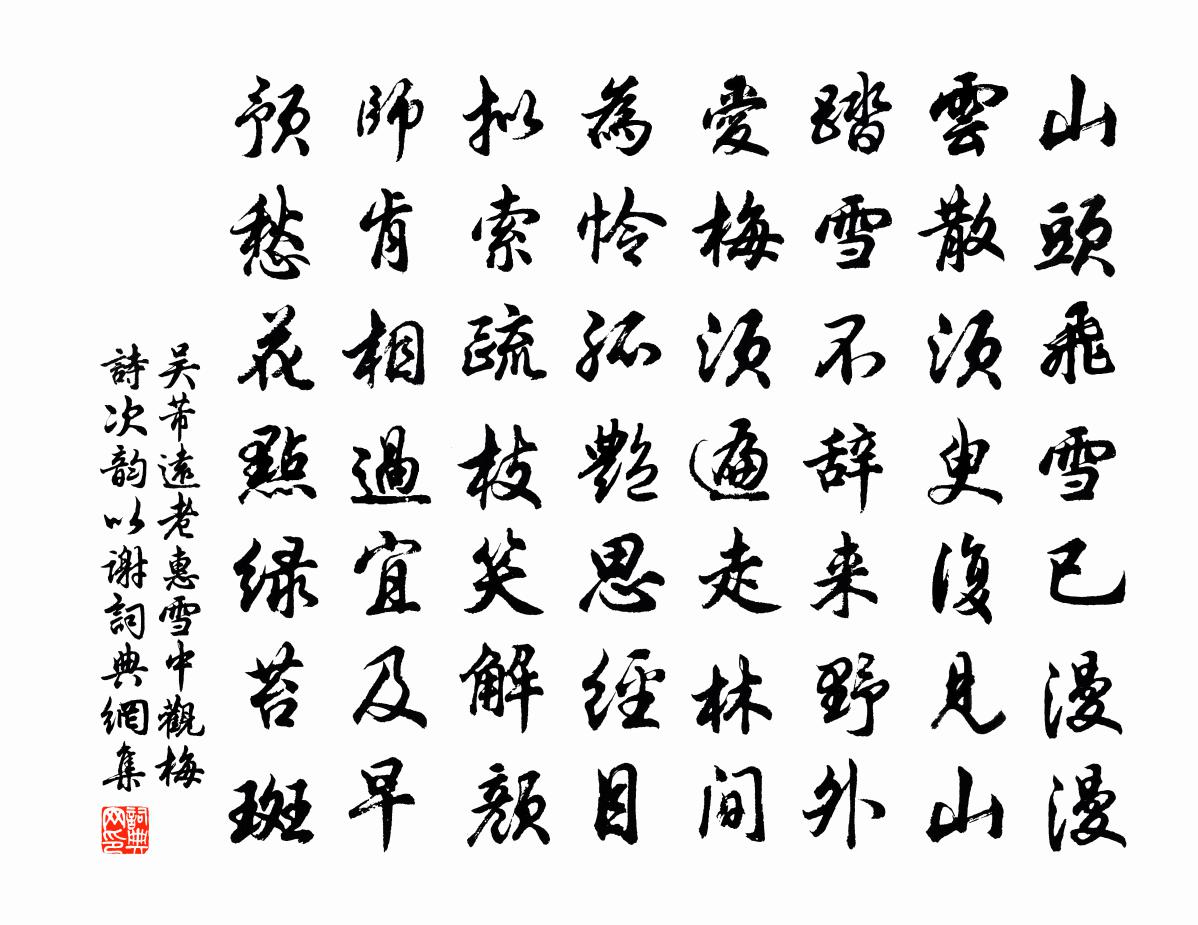 山頭飛雪已漫漫
雲散須臾復見山
踏雪不辞来野外
愛梅須遍走林間
為怜孤艷思經目
拟索疏枝笑解顏
師肯相過宜及早
預愁花點緑苔斑
吴芾遠老惠雪中觀梅
詩次韵以谢詞典網集
詞典网印